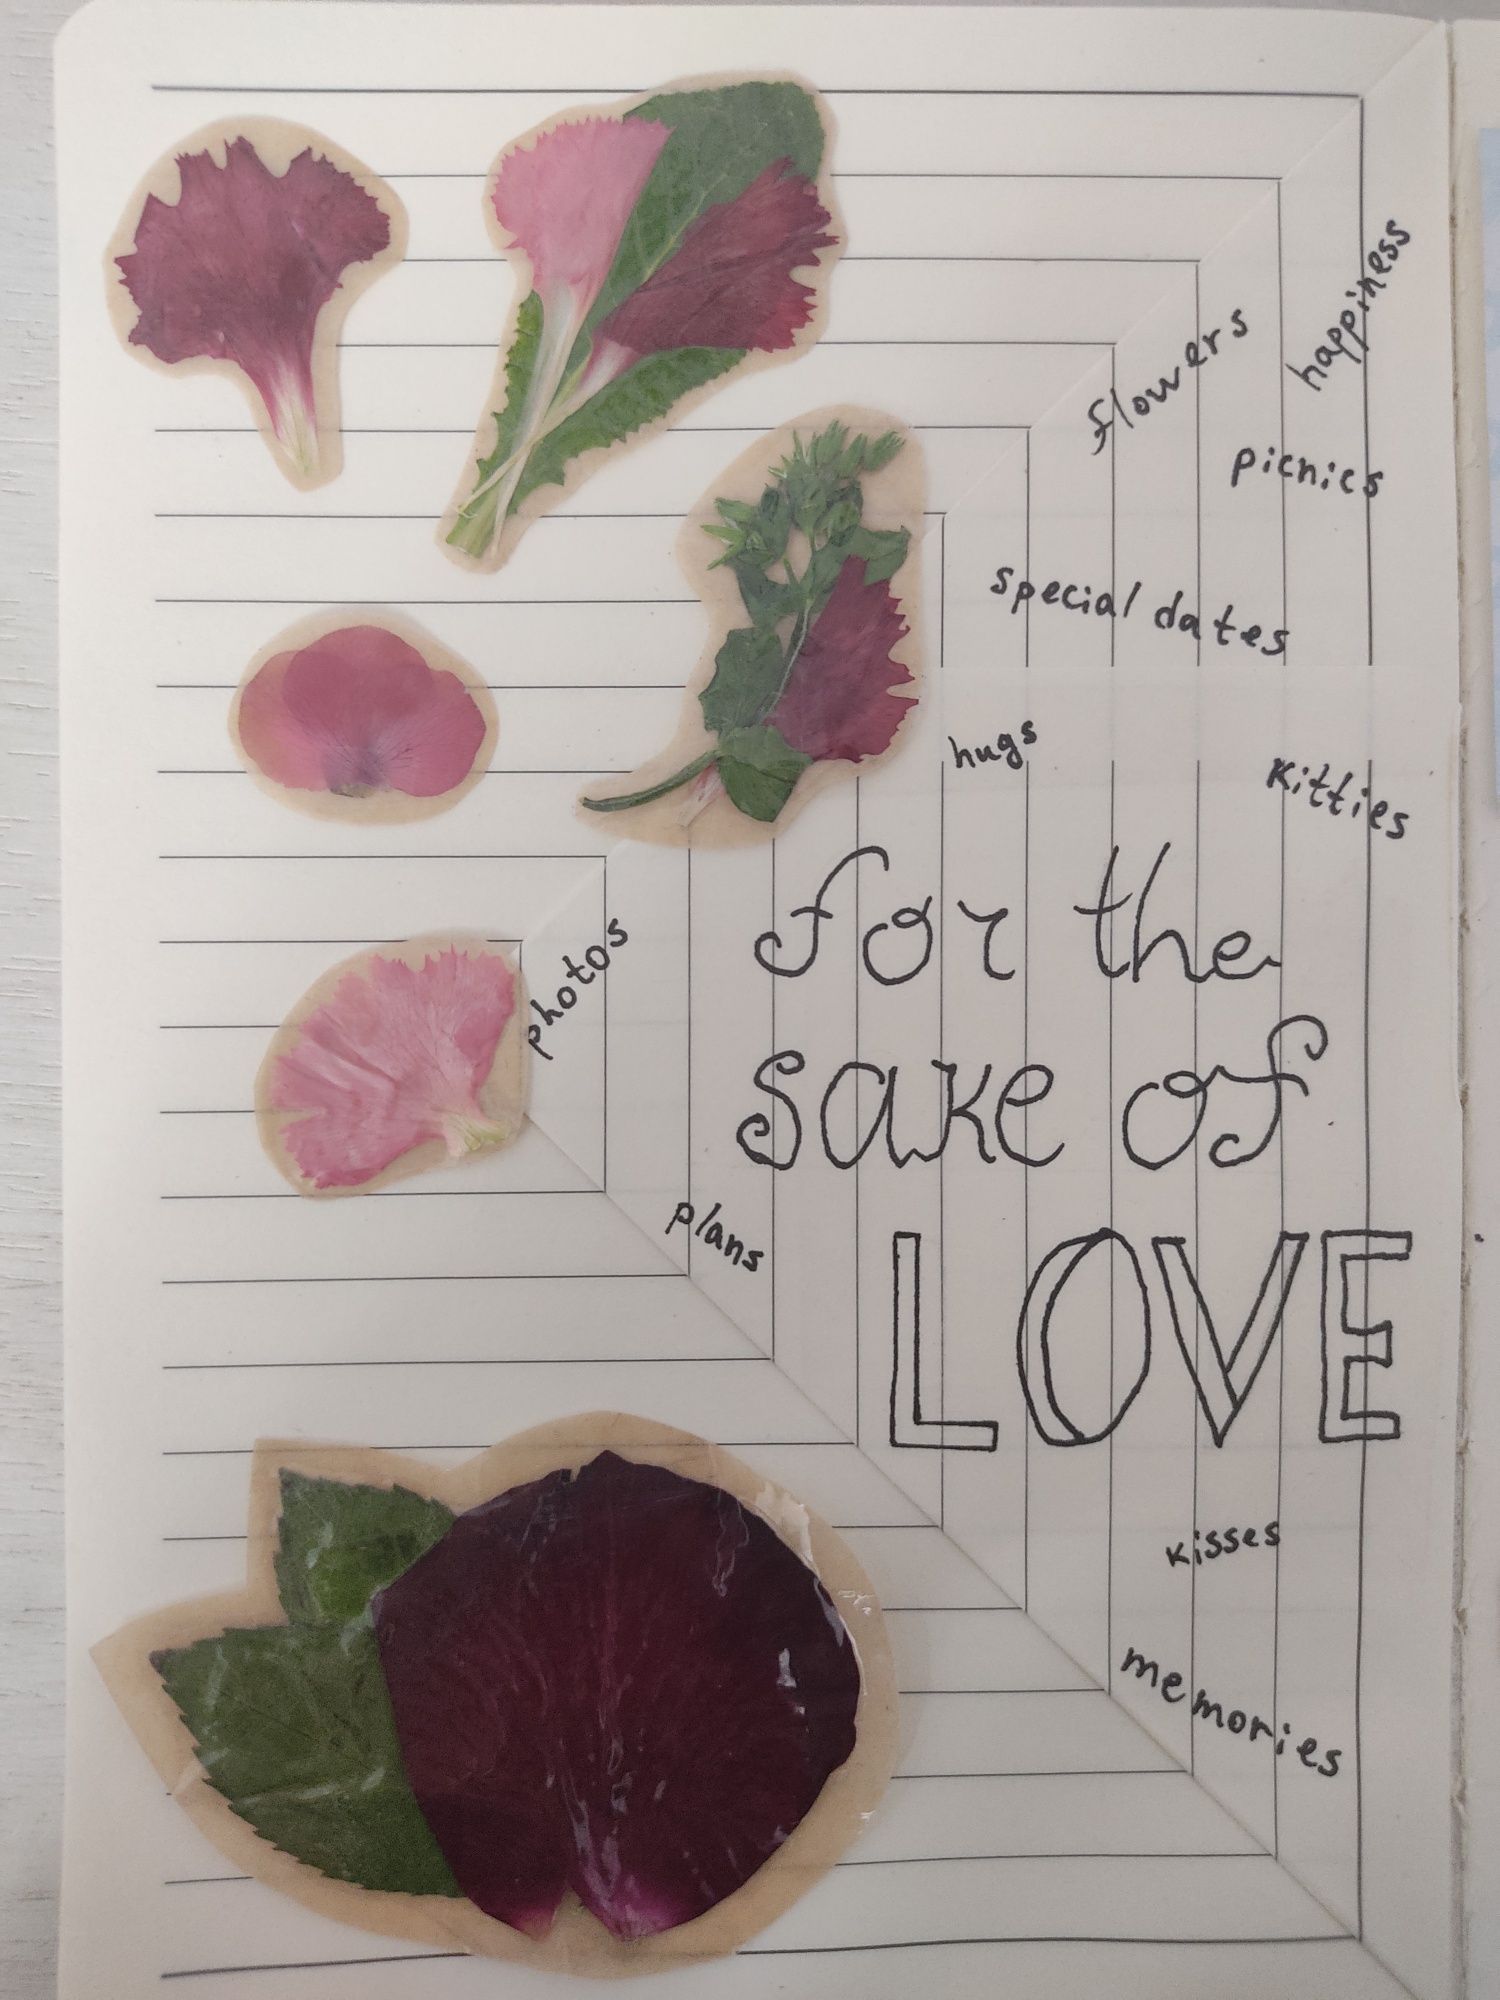 happiness
flowers
picnics
special dates
hugs
kitties
for the
photos
sake of
plans
LOVE
kisses
memories